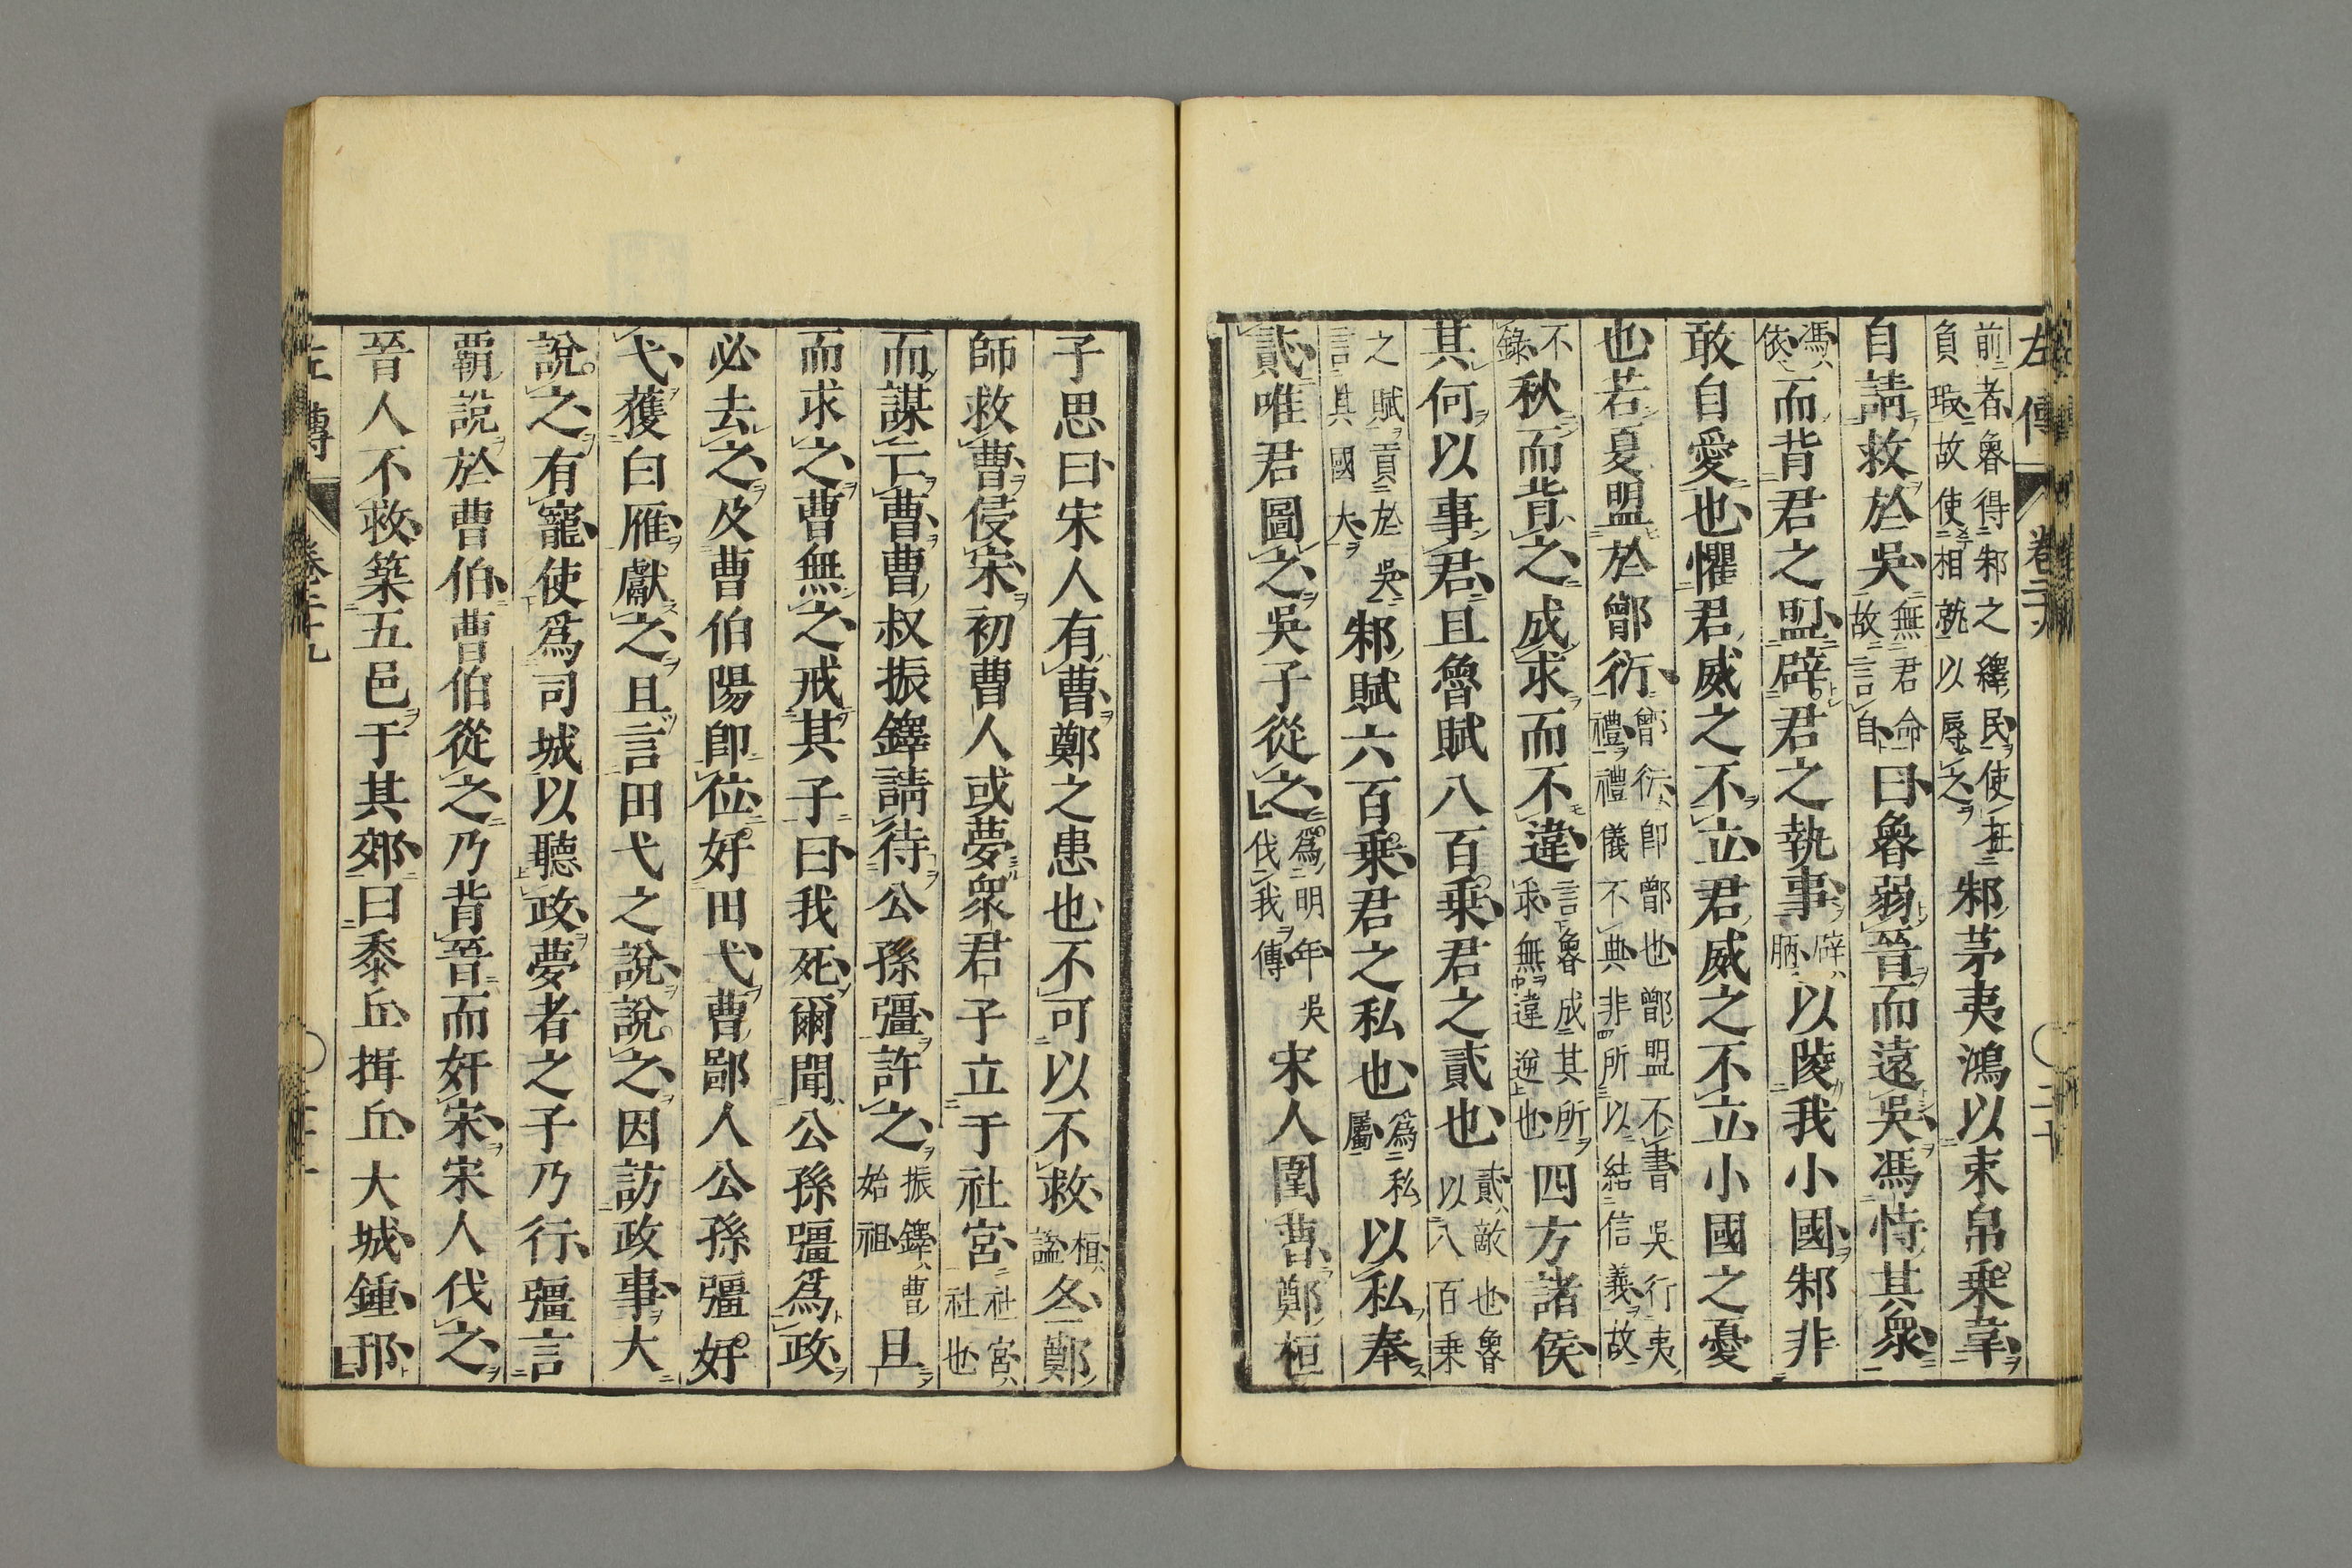 左傳 卷二十九 〇二十
前者魯得邾之繹民使在
負瑕故使相就以辱之 邾茅夷鴻以束帛乘韋
自請救於吳 無君命
故言自 曰魯弱晉而遠吳馮恃其衆
馮
依 而背君之盟辟君之執事 辟
陋 以陵我小國邾非
敢自愛也懼君威之不立君威之不立小國之憂
也若夏盟於鄫衍 鄫衍即鄫也鄫盟不書吳行夷
禮禮儀不典非所以結信義故
不
錄 秋而背之成求而不違 言魯成其所
求無違逆也 四方諸侯
其何以事君且魯賦八百乘君之貳也 貳敵也魯
以八百乘
之賦貢於吳
言其國大 邾賦六百乘君之私也 爲私
屬 以私奉
貳唯君圖之吳子從之 爲明年吳
伐我傳 宋人圍曹鄭桓
子思曰宋人有曹鄭之患也不可以不救 桓
諡 冬鄭
師救曹侵宋初曹人或夢衆君子立于社宮 社宮
社也
而謀亡曹曹叔振鐸請待公孫彊許之 振鐸曹
始祖 且
而求之曹無之戒其子曰我死爾聞公孫彊爲政
必去之及曹伯陽即位好田弋曹鄙人公孫彊好
弋獲白雁獻之且言田弋之說說之因訪政事大
說之有寵使爲司城以聽政夢者之子乃行彊言
霸說於曹伯曹伯從之乃背晉而奸宋宋人伐之
晉人不救築五邑于其郊曰黍丘揖丘大城鍾邘
左傳 卷二十九 〇二十一